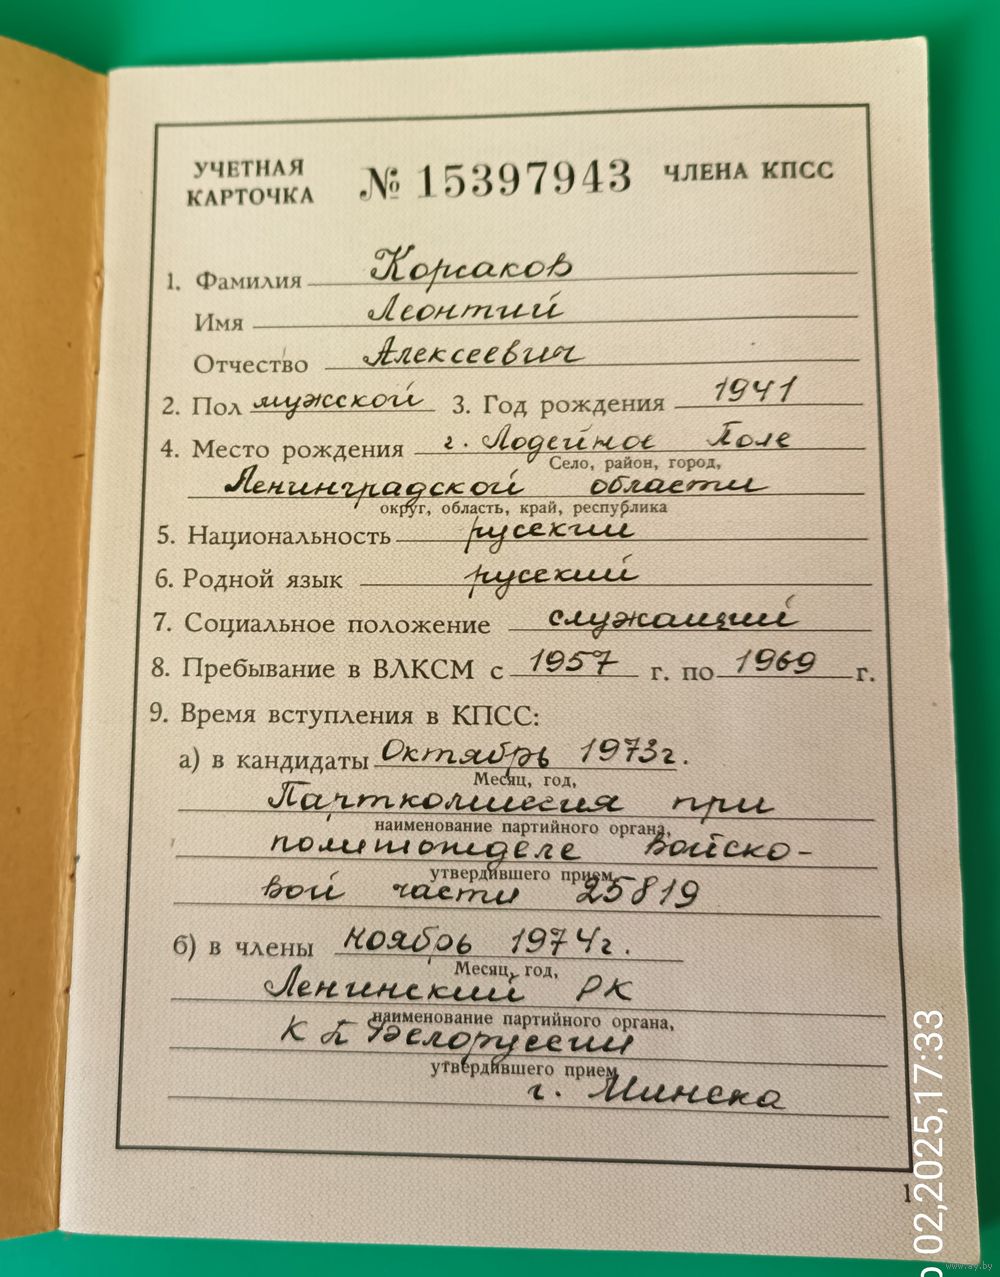 УЧЕТНАЯ КАРТОЧКА № 15397943 ЧЛЕНА КПСС
1. Фамилия Корсаков
Имя Леонтий
Отчество Алексеевич
2. Пол мужской 3. Год рождения 1941
4. Место рождения г. Лодейное Поле
Село, район, город,
Ленинградской области
округ, область, край, республика
5. Национальность русский
6. Родной язык русский
7. Социальное положение служащий
8. Пребывание в ВЛКСМ с 1957 г. по 1969 г.
9. Время вступления в КПСС:
а) в кандидаты Октябрь 1973г.
Месяц, год,
Парткомиссия при
наименование партийного органа,
политотделе войско-
утвердившего прием
вой части 25819
б) в члены ноябрь 1974г.
Месяц, год,
Ленинский РК
наименование партийного органа,
КП Белоруссии
утвердившего прием
г. Минска
1
02,2025,17:33
www.ay.by